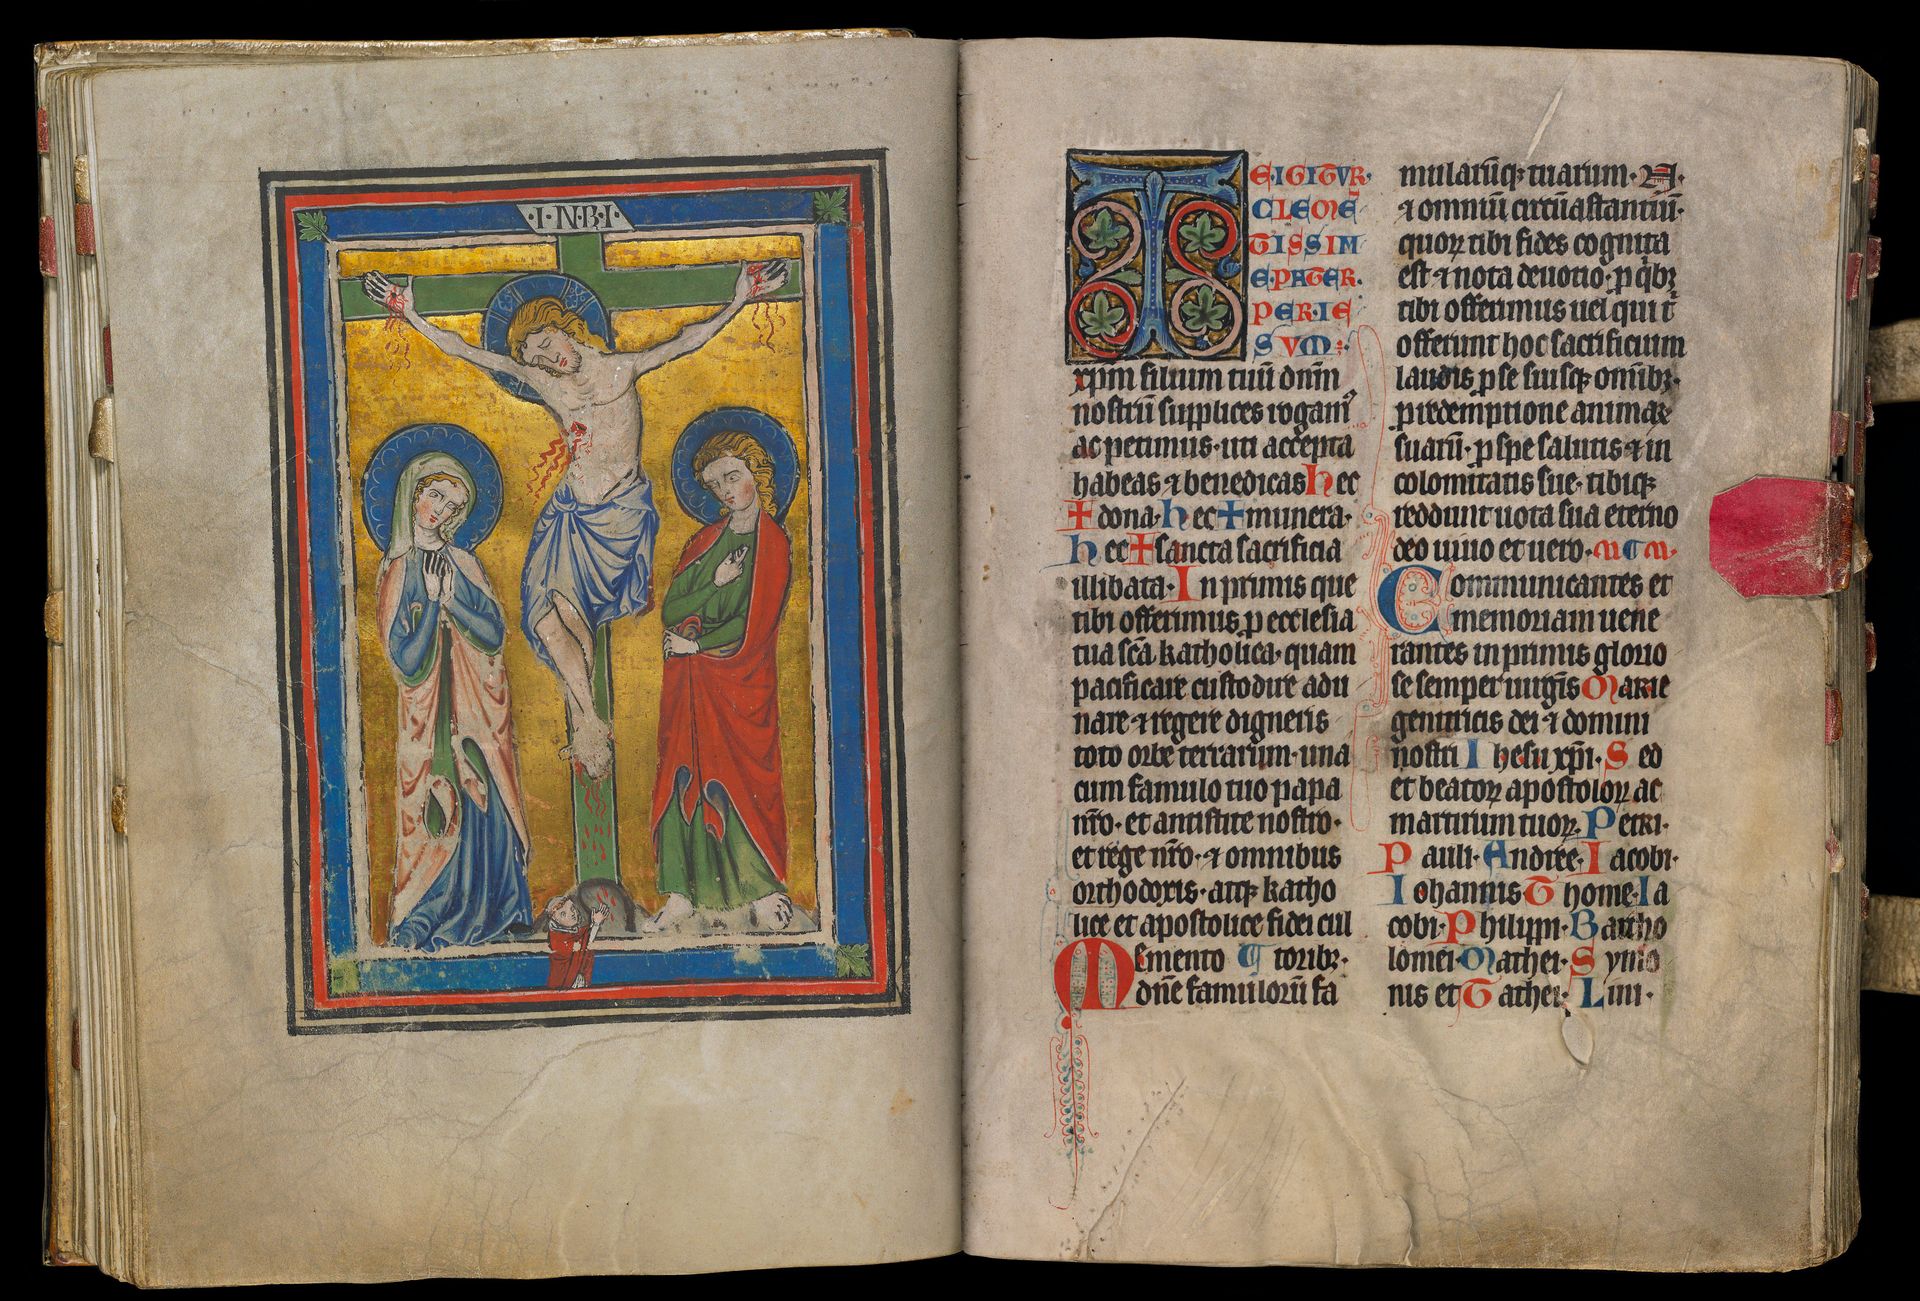 ·I·N·R·I·
TE·IGITVR·
CLEMĒ
TISSIM
E·PATER·
PER·IE
SVM:
xpm filium tuū dnm̄
nostrū supplices rogamꝰ
ac petimus· uti accepta
habeas ⁊ benedicas hec
✝ dona· hec ✝ munera·
hec ✝ sancta sacrificia
illibata· In primis que
tibi offerimus ꝓ ecclesia
tua scā katholica· quam
pacificare custodire adu
nare ⁊ regere digneris
toto orbe terrarum· una
cum famulo tuo papa
nr̄o· et antistite nostro·
et rege nr̄o· ⁊ omnibus
orthodoxis· atqꝫ katho
lice et apostolice fidei cul
Memento ¶ toribꝫ·
dn̄e famulorū fa
mularūqꝫ tuarum· N·
⁊ omniū circūastantiū·
quoꝝ tibi fides cognita
est ⁊ nota deuotio· ꝓ qͥbꝫ
tibi offerimus uel qui t̄
offerunt hoc sacrificium
laudis ꝓ se suisqꝫ omībꝫ·
ꝓ redemptione animaꝝ
suarū· ꝓ spe salutis ⁊ in
colomitatis sue· tibiqꝫ
reddunt uota sua eterno
deo uiuo et uero·
Communicantes et
memoriam uene
rantes in primis glorio
se semper uirgīs Marie
genitricis dei ⁊ domini
nostri Ihesu xp̄i· Sed
et beatoꝝ apostoloꝝ ac
martirum tuoꝝ· Petri·
Pauli· Andree· Iacobi·
Iohannis Thome· Ia
cobi· Philippi· Bartho
lomei· Mathei· Symo
nis et Tathei· Lini·